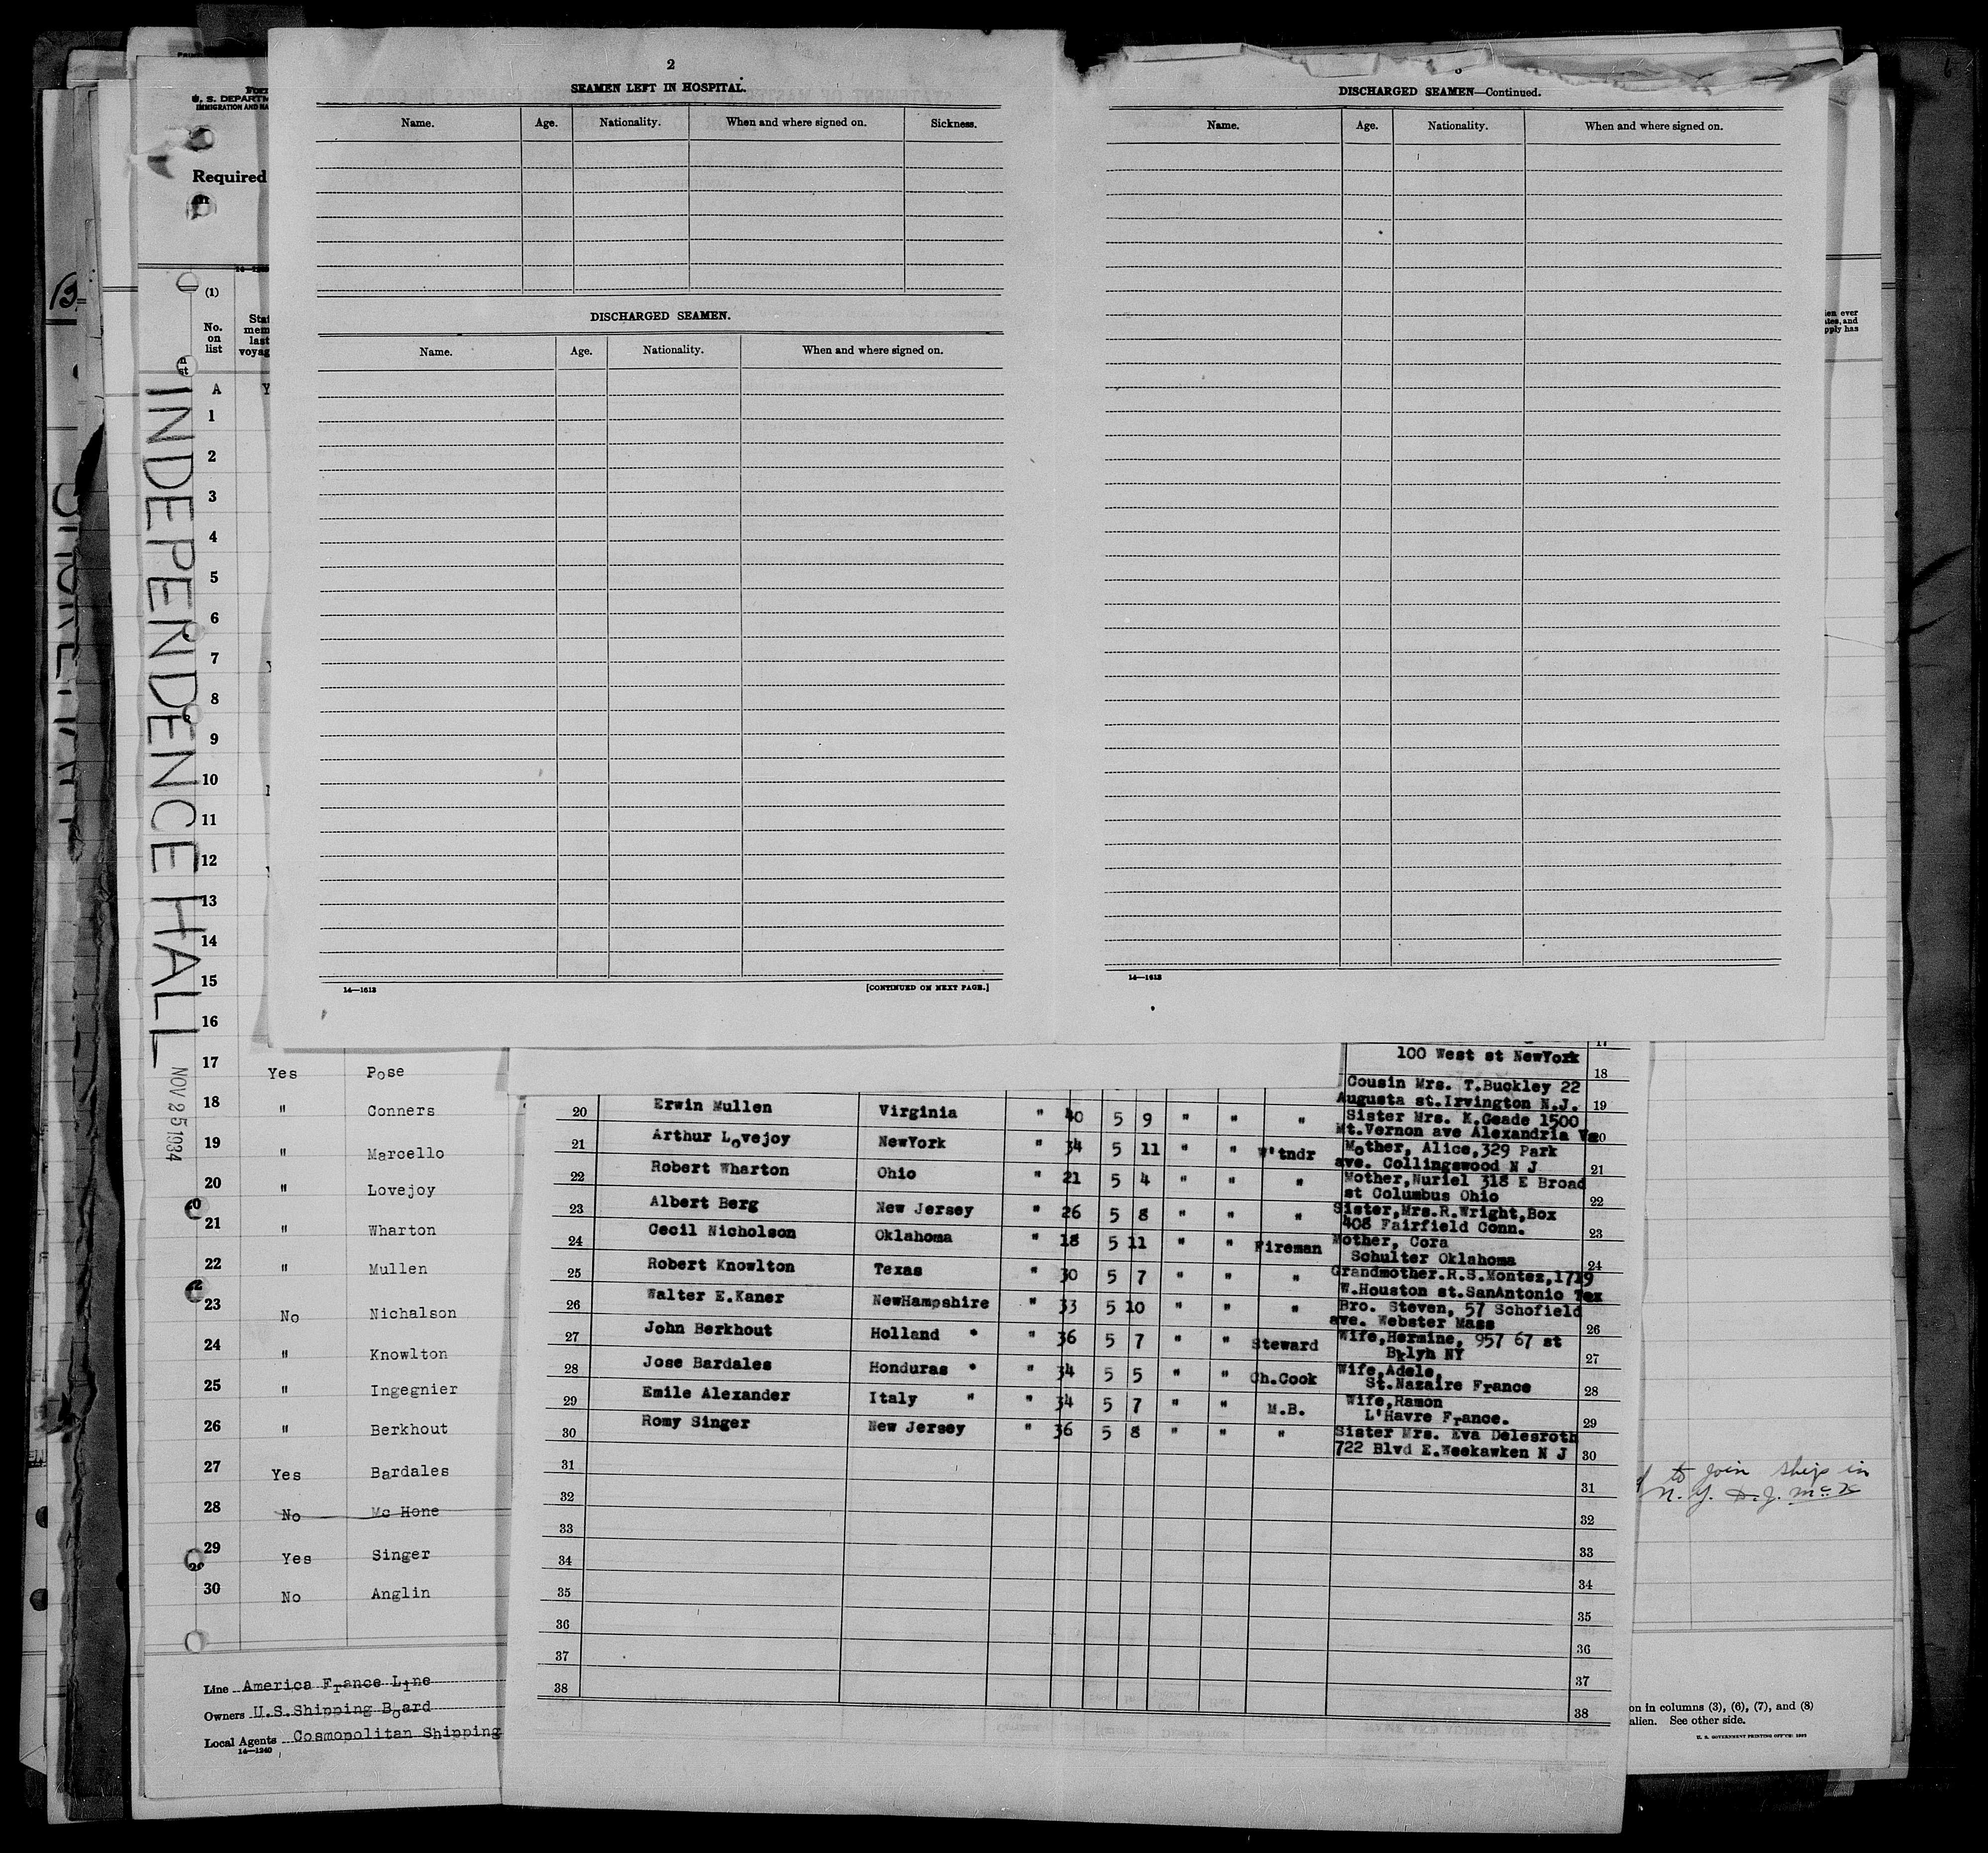 2
SEAMEN LEFT IN HOSPITAL.
Name. Age. Nationality. When and where signed on. Sickness.
DISCHARGED SEAMEN.
Name. Age. Nationality. When and where signed on.
14—1613
[CONTINUED ON NEXT PAGE.]
DISCHARGED SEAMEN—Continued.
Name. Age. Nationality. When and where signed on.
14—1613
U. S. DEPARTM
IMMIGRATION AND NA
Required
(1)
No.
on
list
A
1
2
3
4
5
6
7
8
9
10
11
12
13
14
15
16
INDEPENDENCE HALL
NOV 25 1934
17 Yes Pose
18 " Conners
19 " Marcello
20 " Lovejoy
21 " Wharton
22 " Mullen
23 No Nichalson
24 " Knowlton
25 " Ingegnier
26 " Berkhout
27 Yes Bardales
28 No Mc Hone
29 Yes Singer
30 No Anglin
Line America France Line
Owners U.S.Shipping Board
Local Agents Cosmopolitan Shipping
14—1240
100 West st NewYork
18
Cousin Mrs. T.Buckley 22
Augusta st.Irvington N.J. 19
20 Erwin Mullen Virginia " 40 5 9 " " " Sister Mrs. K.Geade 1500
Mt.Vernon ave Alexandria Va 20
21 Arthur Lovejoy NewYork " 34 5 11 " " W'tndr Mother, Alice,329 Park
ave. Collingswood N J 21
22 Robert Wharton Ohio " 21 5 4 " " " Mother,Nuriel 318 E Broad
st Columbus Ohio 22
23 Albert Berg New Jersey " 26 5 8 " " " Sister,Mrs.R.Wright,Box
408 Fairfield Conn. 23
24 Cecil Nicholson Oklahoma " 18 5 11 " " Fireman Mother, Cora
Schulter Oklahoma 24
25 Robert Knowlton Texas " 30 5 7 " " " Grandmother.R.S.Montez,1719
W.Houston st.SanAntonio Tex
26 Walter E.Kaner NewHampshire " 33 5 10 " " " Bro. Steven, 57 Schofield
ave. Webster Mass 26
27 John Berkhout Holland " 36 5 7 " " Steward Wife,Hermine, 957 67 st
Bklyh NY 27
28 Jose Bardales Honduras " 34 5 5 " " Ch.Cook Wife,Adele,
St.Nazaire France 28
29 Emile Alexander Italy " " 34 5 7 " " M.B. Wife,Ramon
L'Havre France. 29
30 Romy Singer New Jersey " 36 5 8 " " " Sister Mrs. Eva Delesroth
722 Blvd E.Weekawken N J 30
31 31
32 32
33 33
34 34
35 35
36 36
37 37
38 38
to join ship in
N. Y.
on in columns (3), (6), (7), and (8)
alien. See other side.